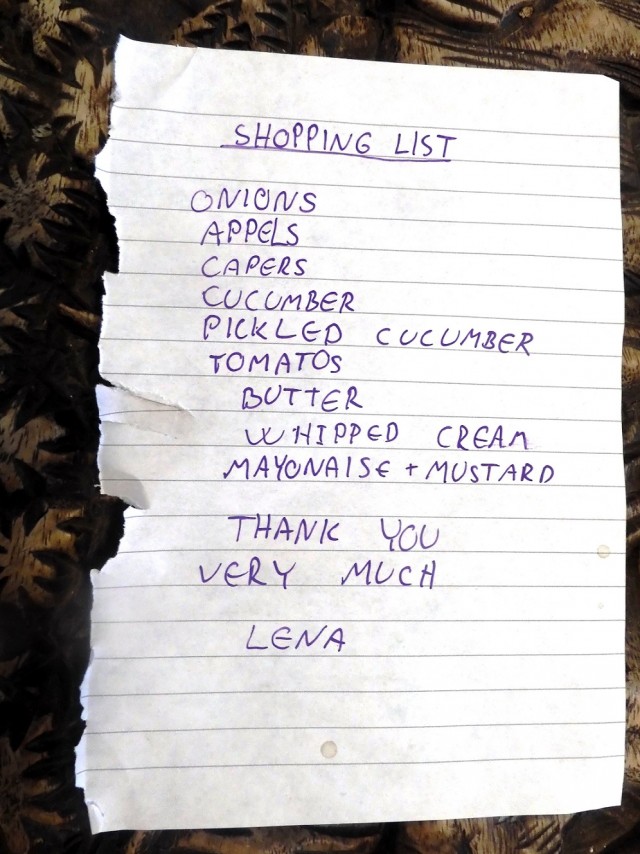 SHOPPING LIST
ONIONS
APPELS
CAPERS
CUCUMBER
PICKLED CUCUMBER
TOMATOS
BUTTER
WHIPPED CREAM
MAYONAISE + MUSTARD
THANK YOU
VERY MUCH
LENA